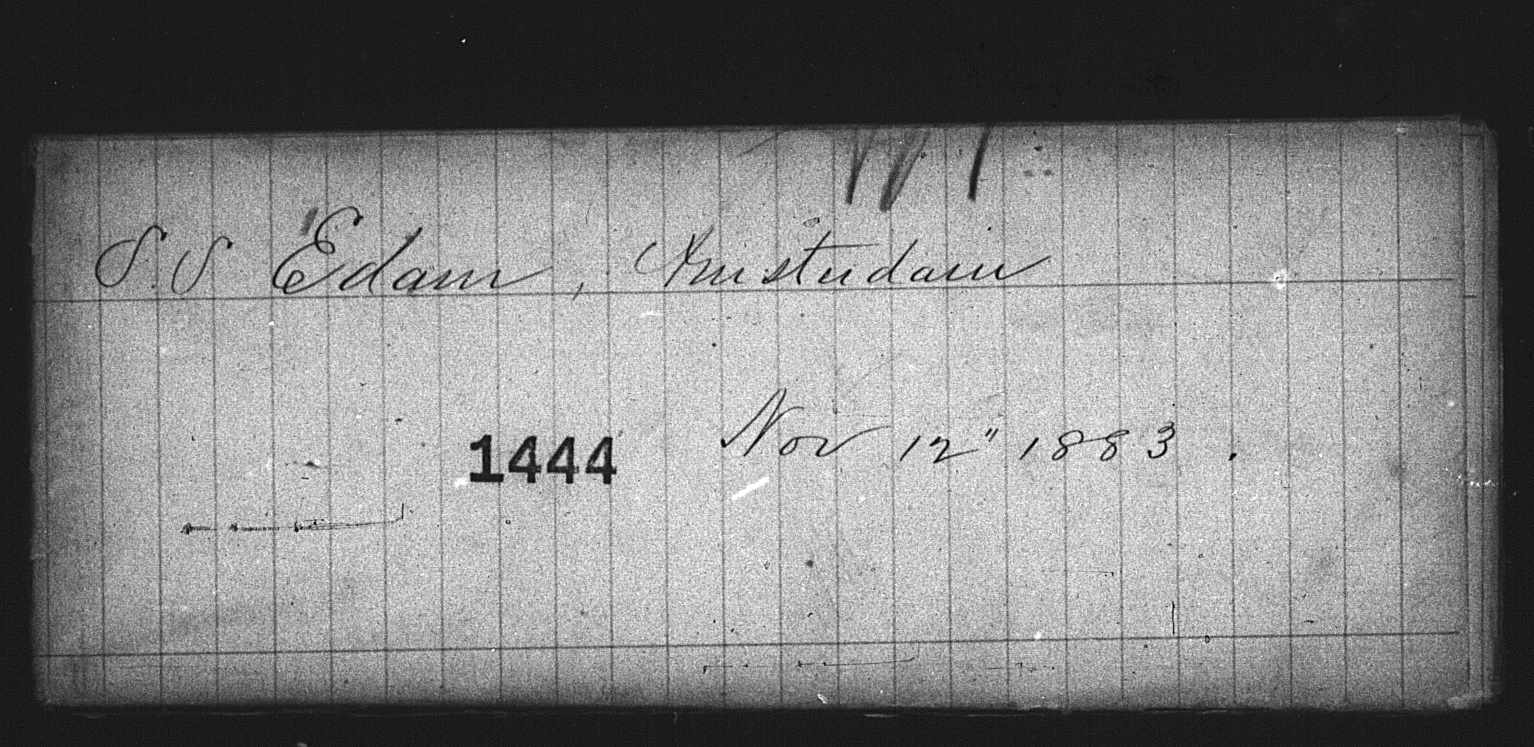 S.S Edam, Amsterdam
1444 Nov 12" 1883.